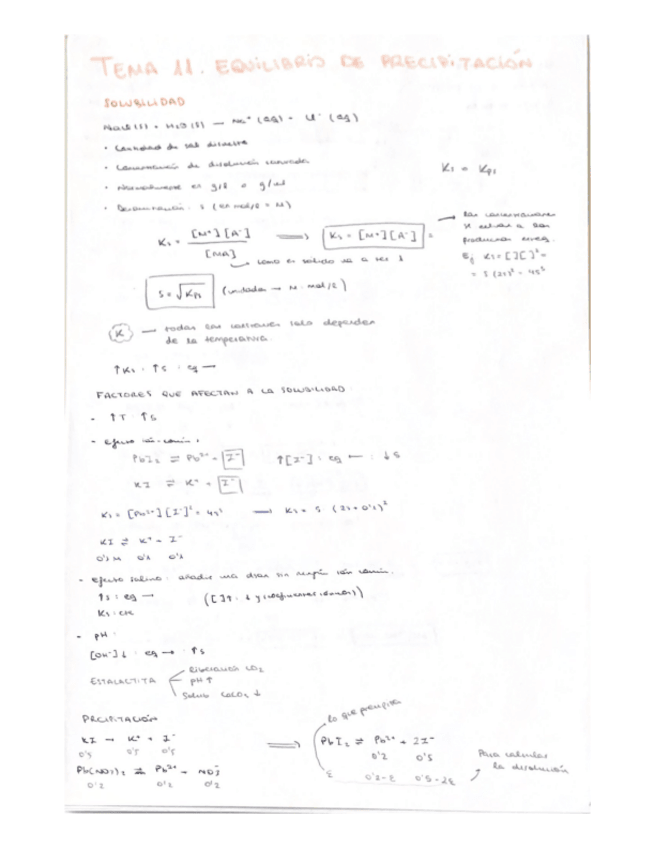 TEMA 11. EQUILIBRIO DE PRECIPITACIÓN
SOLUBILIDAD
NaCl (s) + H2O (l) → Na+ (aq) + Cl- (aq)
· Cantidad de sal disuelta
· Concentración de disolución saturada
· Normalmente en g/l o g/ml
· Denominación: s (en mol/l = M)
Ks = Kps
Ks = [M+][A-] / [MA] ⟹ Ks = [M+][A-] =
como es sólido va a ser 1
→ Las concentraciones
se elevan a sus
Ej Ks = [ ][ ]² =
= s (2s)² = 4s³
s = √Kps (unidades → M = mol/l)
K → todas las constantes solo dependen
de la temperatura.
↑Ks : ↑s : eq →
FACTORES QUE AFECTAN A LA SOLUBILIDAD:
- ↑T : ↑s
- Efecto ión-común:
PbI2 ⇌ Pb2+ + I- ↑[I-] : eq ← : ↓s
KI ⇌ K+ + I-
Ks = [Pb2+][I-]² = 4s³ → Ks = s · (2s + 0'1)²
KI ⇌ K+ + I-
0'1 M 0'1 0'1
- Efecto salino: añadir una disón sin ningún ión común.
↑s : eq → ([ ]↑ : ↓ γ (coeficientes iónicos))
Ks : cte
- pH:
[OH-]↓ : eq → : ↑s
ESTALACTITA
Liberación CO2
pH ↑
Solub CaCO3 ↓
PRECIPITACIÓN
KI → K+ + I-
0'5 0'5 0'5
Pb(NO3)2 ⇌ Pb2+ + NO3-
0'2 0'2 0'2
⟹
lo que precipita
PbI2 ⇌ Pb2+ + 2I-
0'2 0'5
ξ 0'2-ξ 0'5-2ξ
Para calcular
la disolución